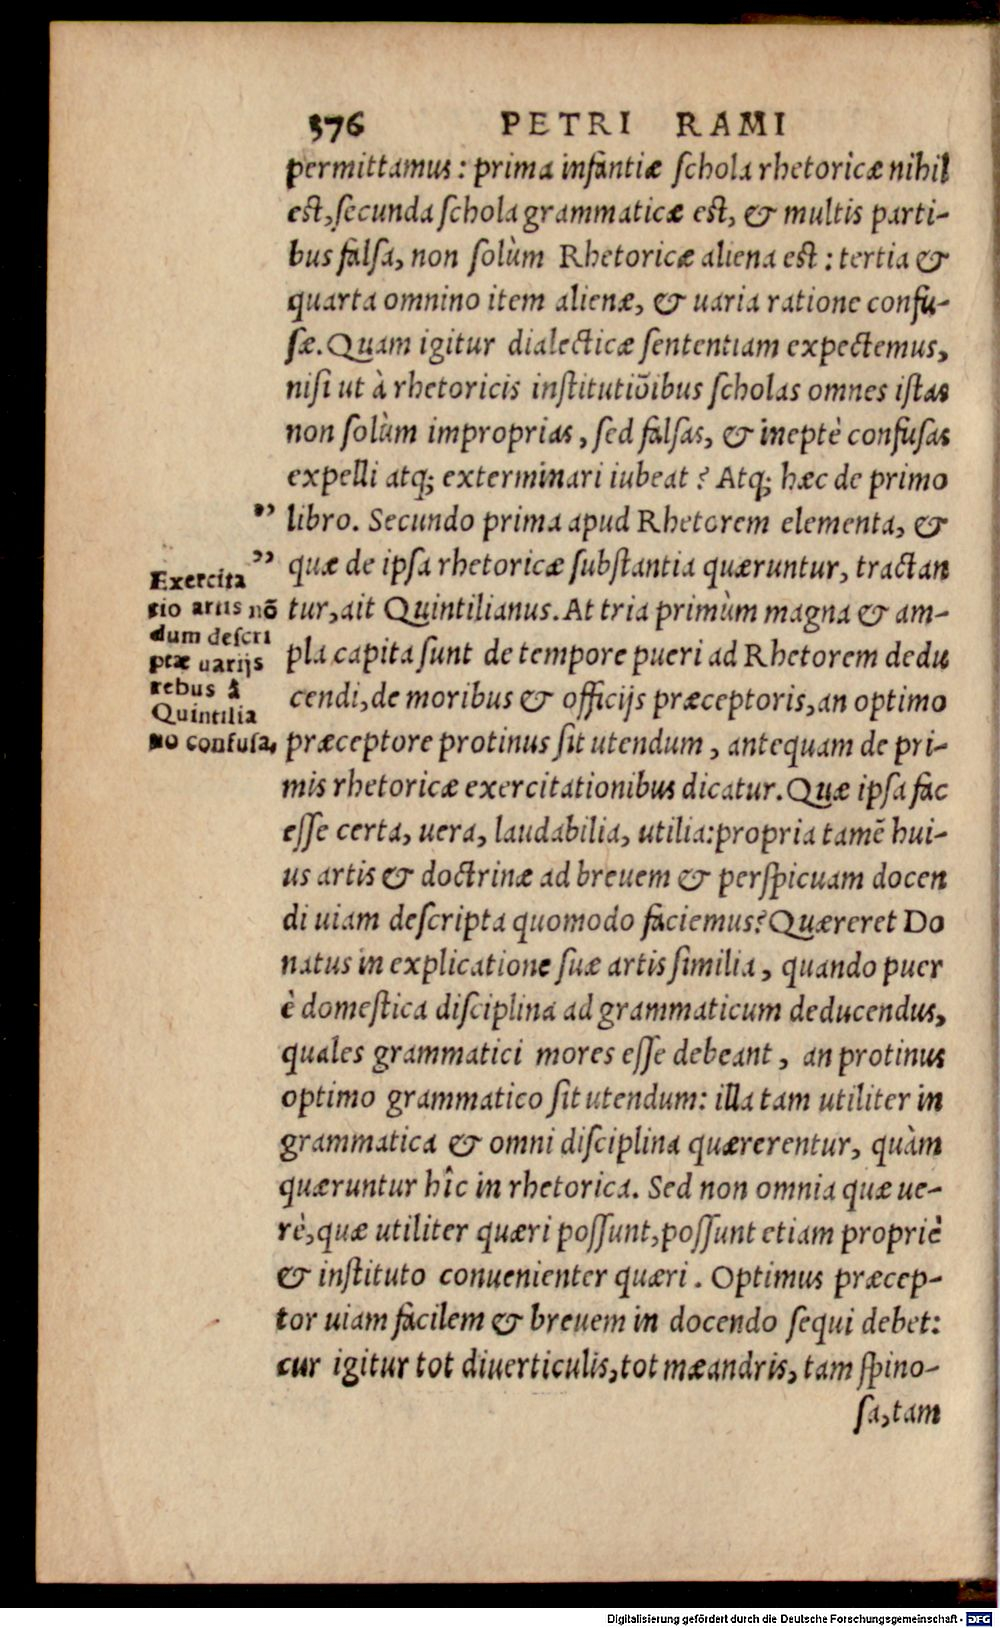 376 PETRI RAMI
permittamus: prima infantiæ schola rhetoricæ nihil
est, secunda schola grammaticæ est, & multis parti-
bus falsa, non solùm Rhetoricæ aliena est: tertia &
quarta omnino item alienæ, & uaria ratione confu-
sæ. Quam igitur dialecticæ sententiam expectemus,
nisi ut à rhetoricis institutiõibus scholas omnes istas
non solùm improprias, sed falsas, & ineptè confusas
expelli atq; exterminari iubeat? Atq; hæc de primo
" libro. Secundo prima apud Rhetorem elementa, &
" quæ de ipsa rhetoricæ substantia quæruntur, tractan
tur, ait Quintilianus. At tria primùm magna & am-
pla capita sunt de tempore pueri ad Rhetorem dedu
cendi, de moribus & officijs præceptoris, an optimo
præceptore protinus sit utendum, antequam de pri-
mis rhetoricæ exercitationibus dicatur. Quæ ipsa fac
esse certa, uera, laudabilia, utilia: propria tamẽ hui-
us artis & doctrinæ ad breuem & perspicuam docen
di uiam descripta quomodo faciemus? Quæreret Do
natus in explicatione suæ artis similia, quando puer
è domestica disciplina ad grammaticum deducendus,
quales grammatici mores esse debeant, an protinus
optimo grammatico sit utendum: illa tam utiliter in
grammatica & omni disciplina quærerentur, quàm
quæruntur hîc in rhetorica. Sed non omnia quæ ue-
rè, quæ utiliter quæri possunt, possunt etiam propriè
& instituto conuenienter quæri. Optimus præcep-
tor uiam facilem & breuem in docendo sequi debet:
cur igitur tot diuerticulis, tot mæandris, tam spino-
sa, tam
Exercita
tio artis nõ
dum descri
ptæ uarijs
rebus â
Quintilia
no confusa,
Digitalisierung gefördert durch die Deutsche Forschungsgemeinschaft - DFG